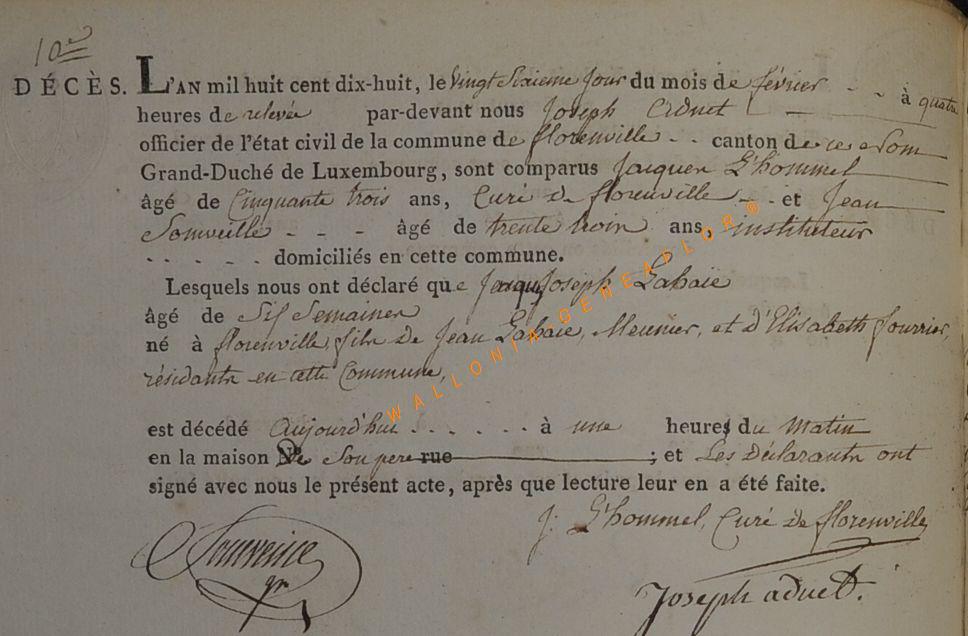 10e
DÉCÈS. L'AN mil huit cent dix-huit, le Vingt Sixieme Jour du mois de février - - à quatre
heures de relevée par-devant nous Joseph Adnet
officier de l'état civil de la commune de florenville - - canton de ce Nom
Grand-Duché de Luxembourg, sont comparus Jacques L'hommel
âgé de Cinquante trois ans, Curé de florenville - - et Jean
Somveille - - - âgé de trente trois ans, instituteur
- - - - - domiciliés en cette commune.
Lesquels nous ont déclaré que Jacques Joseph Lahaie
âgé de Six Semaines
né à florenville, fils de Jean Lahaie, Meunier, et d'Elisabeth Fourrier,
résidants en cette Commune,
est décédé aujourd'hui . . . . . . à une heures du Matin
en la maison De Son pere rue ; et Les Déclarants ont
signé avec nous le présent acte, après que lecture leur en a été faite.
J: L'hommel, Curé de florenville
Joseph adnet.
WALLONIA-GENEAFLOR ®